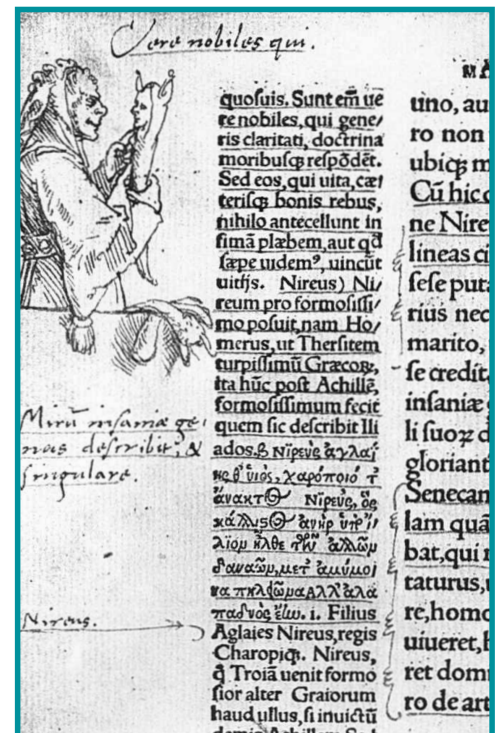 Vere nobiles qui.
quosuis. Sunt em̃ ue
re nobiles, qui gene/
ris claritati, doctrina
moribusq̃ respõdẽt.
Sed eos, qui uita, cæ
terisq̃ bonis rebus,
nihilo antecellunt in
fimã plæbem, aut qđ
sæpe uidemꝰ, uincũt
uitijs. Nireus) Ni/
reum pro formosissi/
mo posuit, nam Ho/
merus, ut Thersitem
turpissimũ Græcoꝝ,
ita hũc post Achillẽ,
formosissimum fecit
quem sic describit Ili
ados.β Νιρεὺς ἀγλαΐ
Νιρεὺς, ὃς
i. Filius
Aglaies Nireus, regis
Charopiq̃. Nireus,
q̃ Troiã uenit formo
sior alter Graiorum
haud ullus, si inuictũ
Mirũ insaniæ ge-
nus describit, &
singulare.
Nireus.
MA
uno, au
ro non
ubiq̃ m
Cũ hic c
ne Nire
lineas ci
sese puta
rius nec
marito,
se credit
insaniæ
li suoꝝ d
gloriant
Senecan
lam quã
bat, qui
taturus,
re, homo
uiueret,
ret dom
ro de art